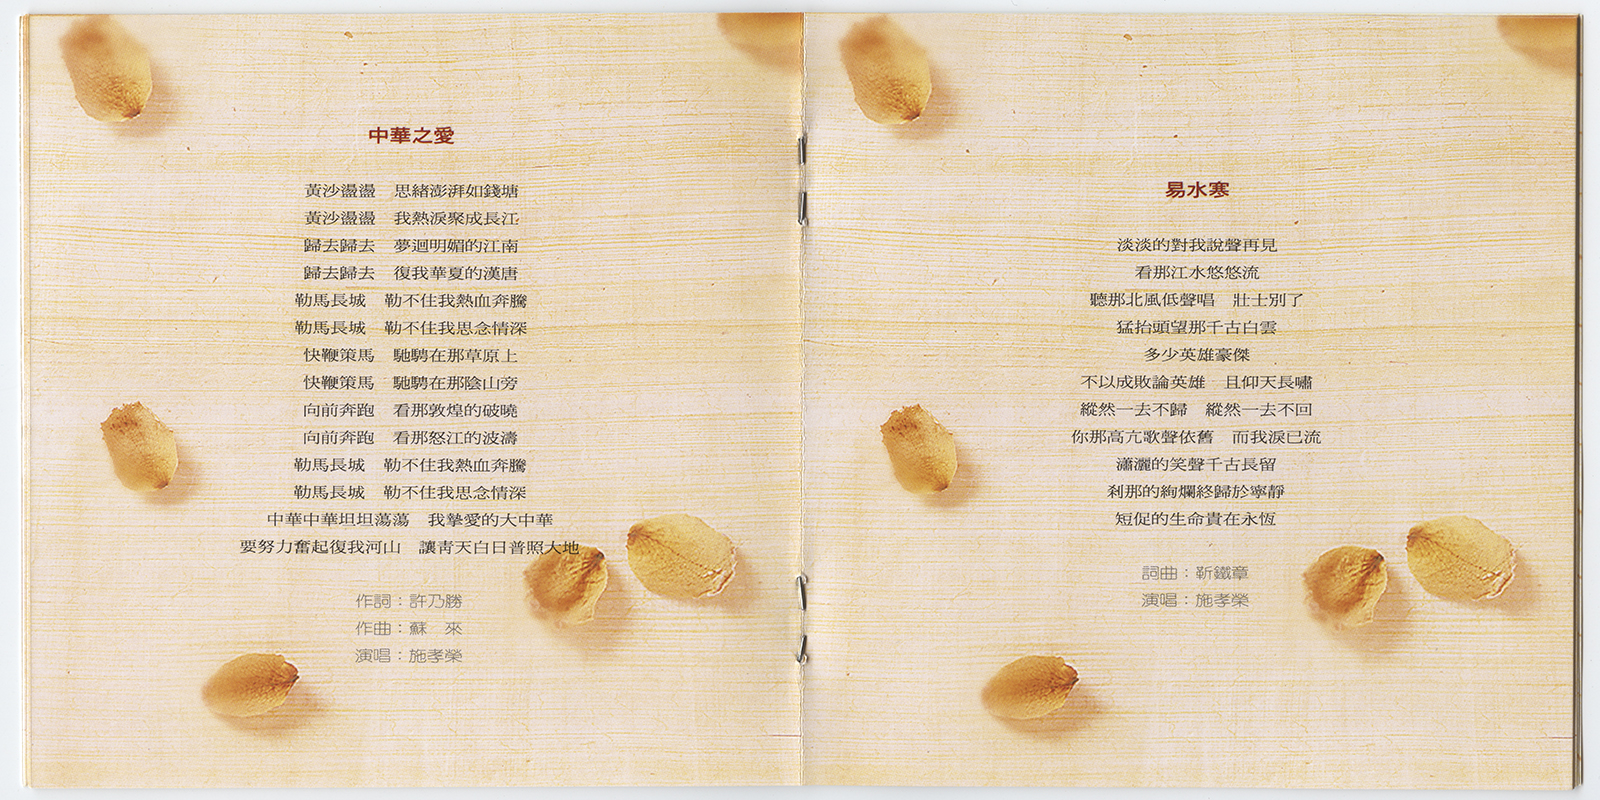 中華之愛
黃沙盪盪　思緒澎湃如錢塘
黃沙盪盪　我熱淚聚成長江
歸去歸去　夢迴明媚的江南
歸去歸去　復我華夏的漢唐
勒馬長城　勒不住我熱血奔騰
勒馬長城　勒不住我思念情深
快鞭策馬　馳騁在那草原上
快鞭策馬　馳騁在那陰山旁
向前奔跑　看那敦煌的破曉
向前奔跑　看那怒江的波濤
勒馬長城　勒不住我熱血奔騰
勒馬長城　勒不住我思念情深
中華中華坦坦蕩蕩　我摯愛的大中華
要努力奮起復我河山　讓青天白日普照大地
作詞：許乃勝
作曲：蘇　來
演唱：施孝榮
易水寒
淡淡的對我說聲再見
看那江水悠悠流
聽那北風低聲唱　壯士別了
猛抬頭望那千古白雲
多少英雄豪傑
不以成敗論英雄　且仰天長嘯
縱然一去不歸　縱然一去不回
你那高亢歌聲依舊　而我淚已流
瀟灑的笑聲千古長留
剎那的絢爛終歸於寧靜
短促的生命貴在永恆
詞曲：靳鐵章
演唱：施孝榮